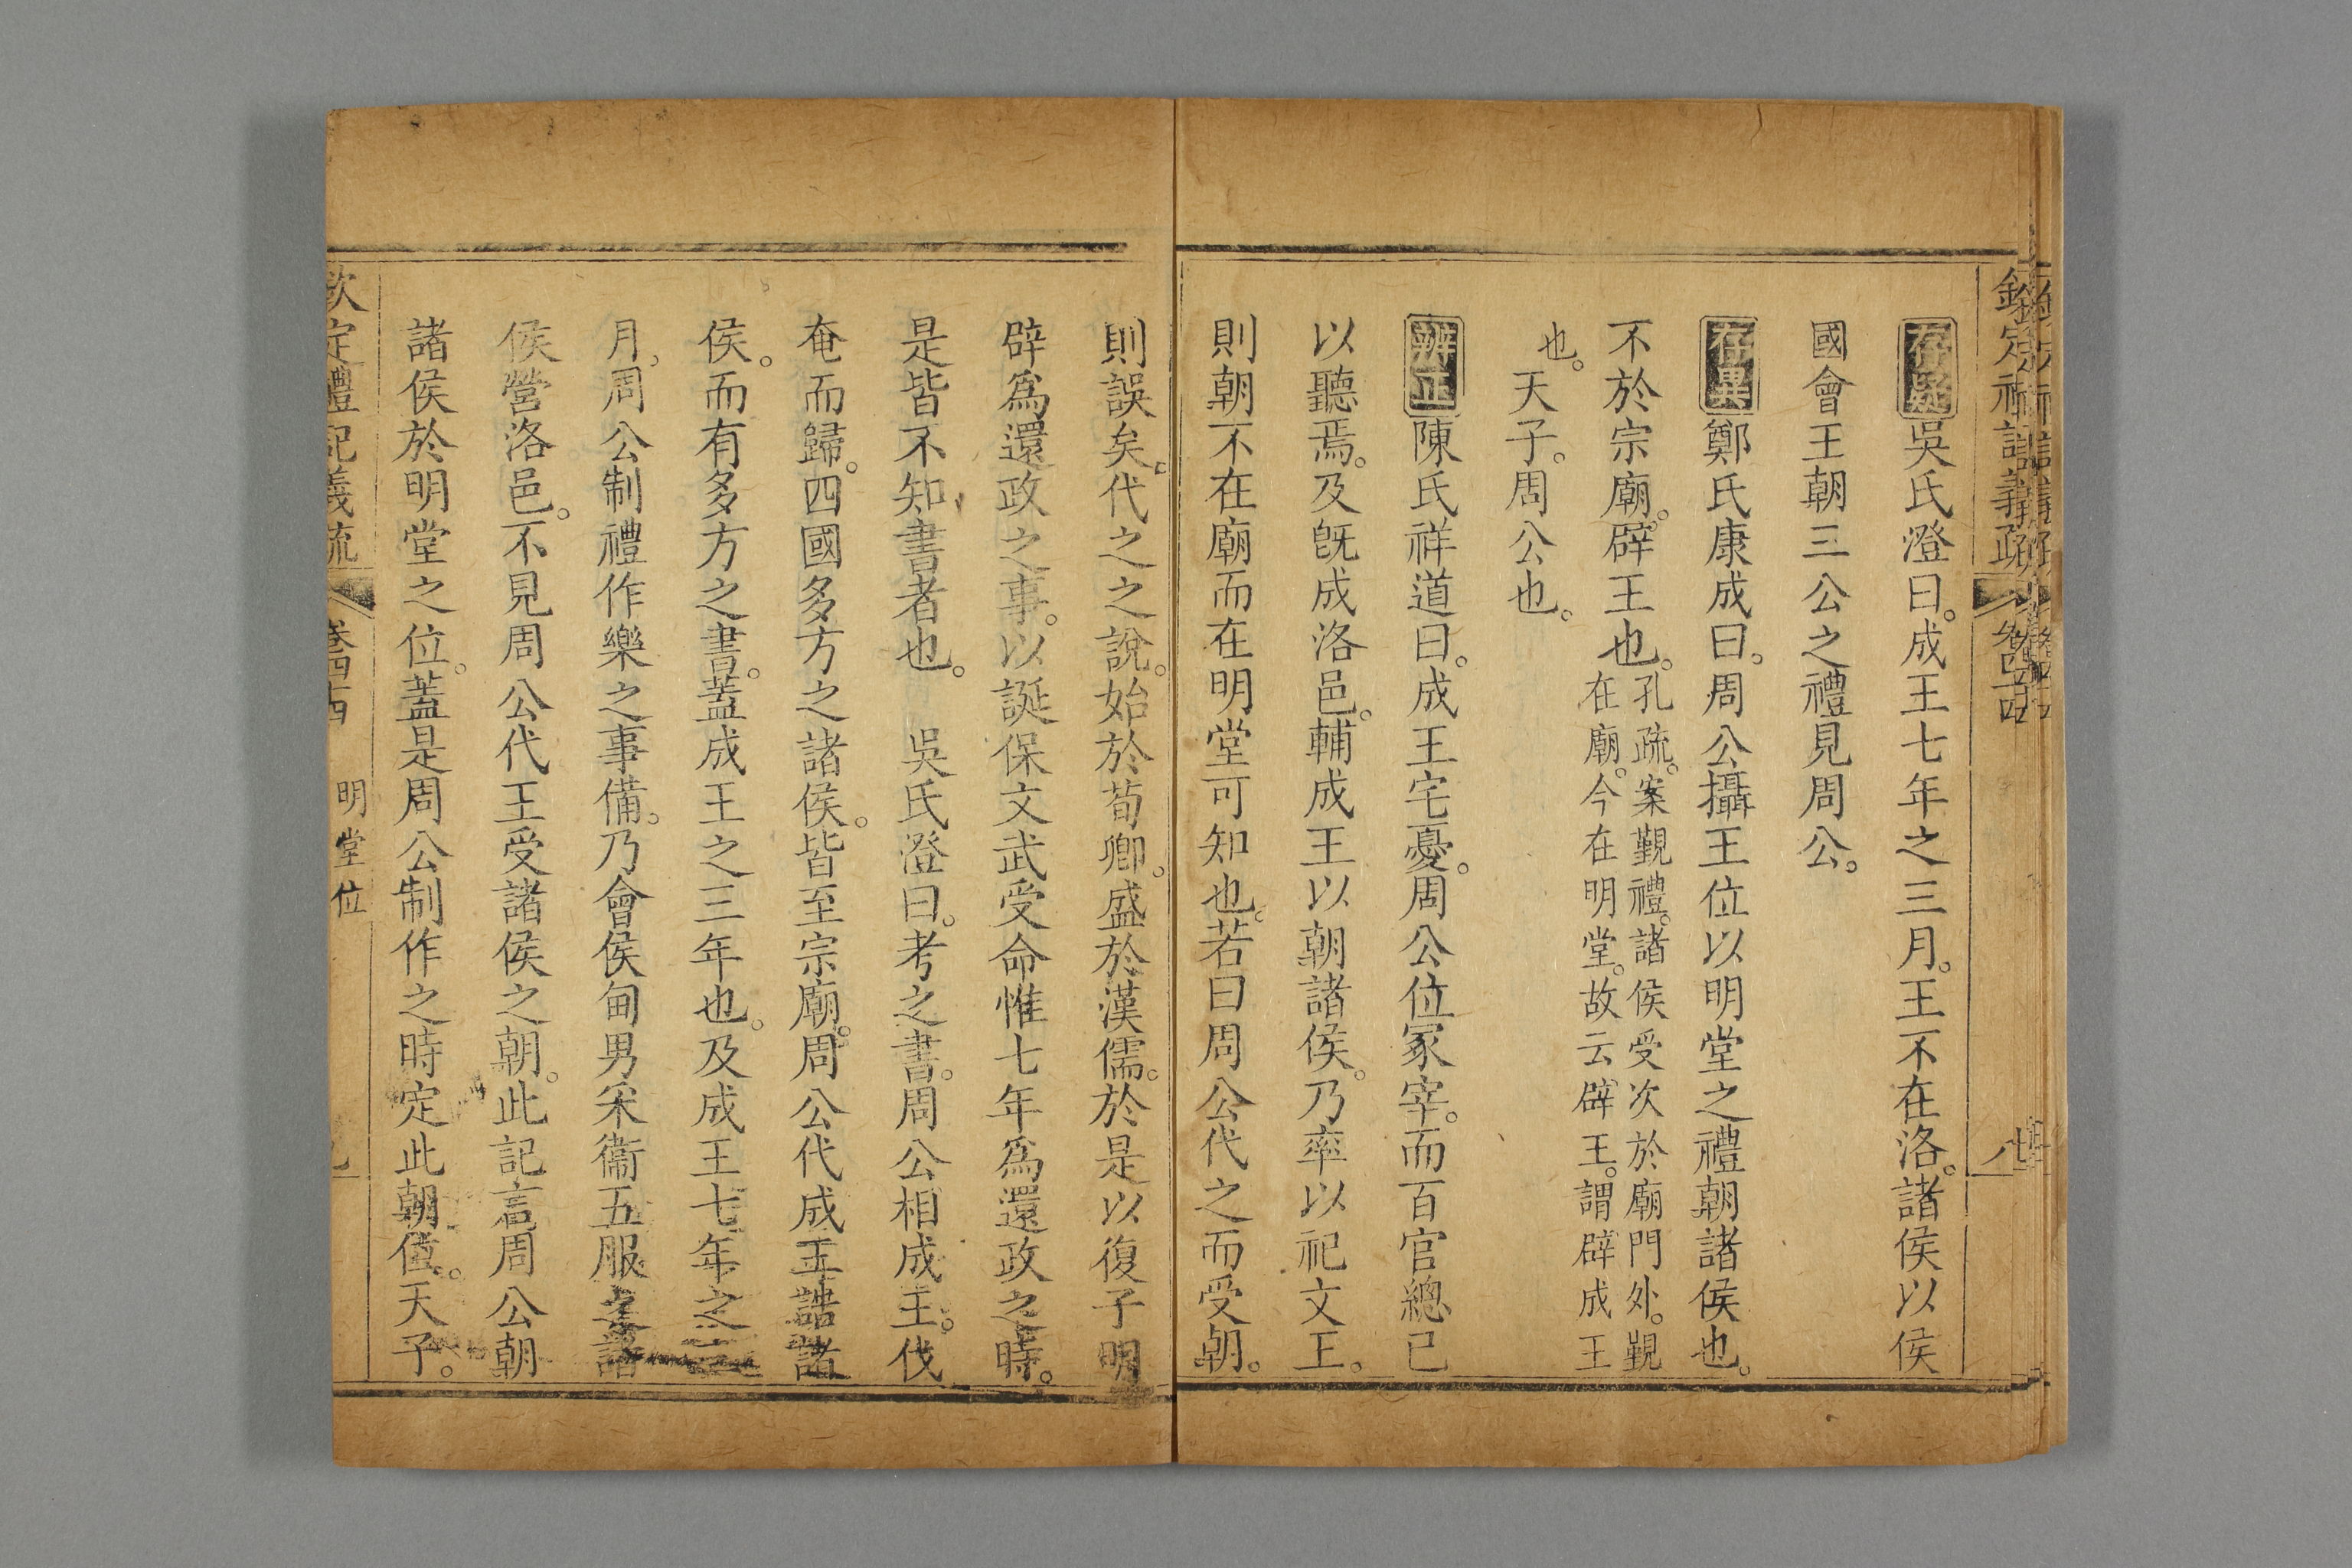 存疑吳氏澄曰。成王七年之三月。王不在洛。諸侯以侯
國會王朝三公之禮見周公。
存異鄭氏康成曰。周公攝王位以明堂之禮朝諸侯也。
不於宗廟。辟王也。孔疏。案覲禮。諸侯受次於廟門外。覲
在廟。今在明堂。故云辟王。謂辟成王
也。天子。周公也。
辨正陳氏祥道曰。成王宅憂。周公位冢宰。而百官總已
以聽焉。及旣成洛邑。輔成王以朝諸侯。乃率以祀文王。
則朝不在廟而在明堂可知也。若曰周公代之而受朝。
則誤矣。代之之說。始於荀卿。盛於漢儒。於是以復子明
辟爲還政之事。以誕保文武受命惟七年爲還政之時。
是皆不知書者也。 吳氏澄曰。考之書。周公相成王。伐
奄而歸。四國多方之諸侯。皆至宗廟。周公代成王誥諸
侯。而有多方之書。蓋成王之三年也。及成王七年之三
月。周公制禮作樂之事備。乃會侯甸男采衞五服之諸
侯營洛邑。不見周公代王受諸侯之朝。此記言周公朝
諸侯於明堂之位。蓋是周公制作之時定此朝位。天子。
欽定禮記義疏 卷四十四 明堂位